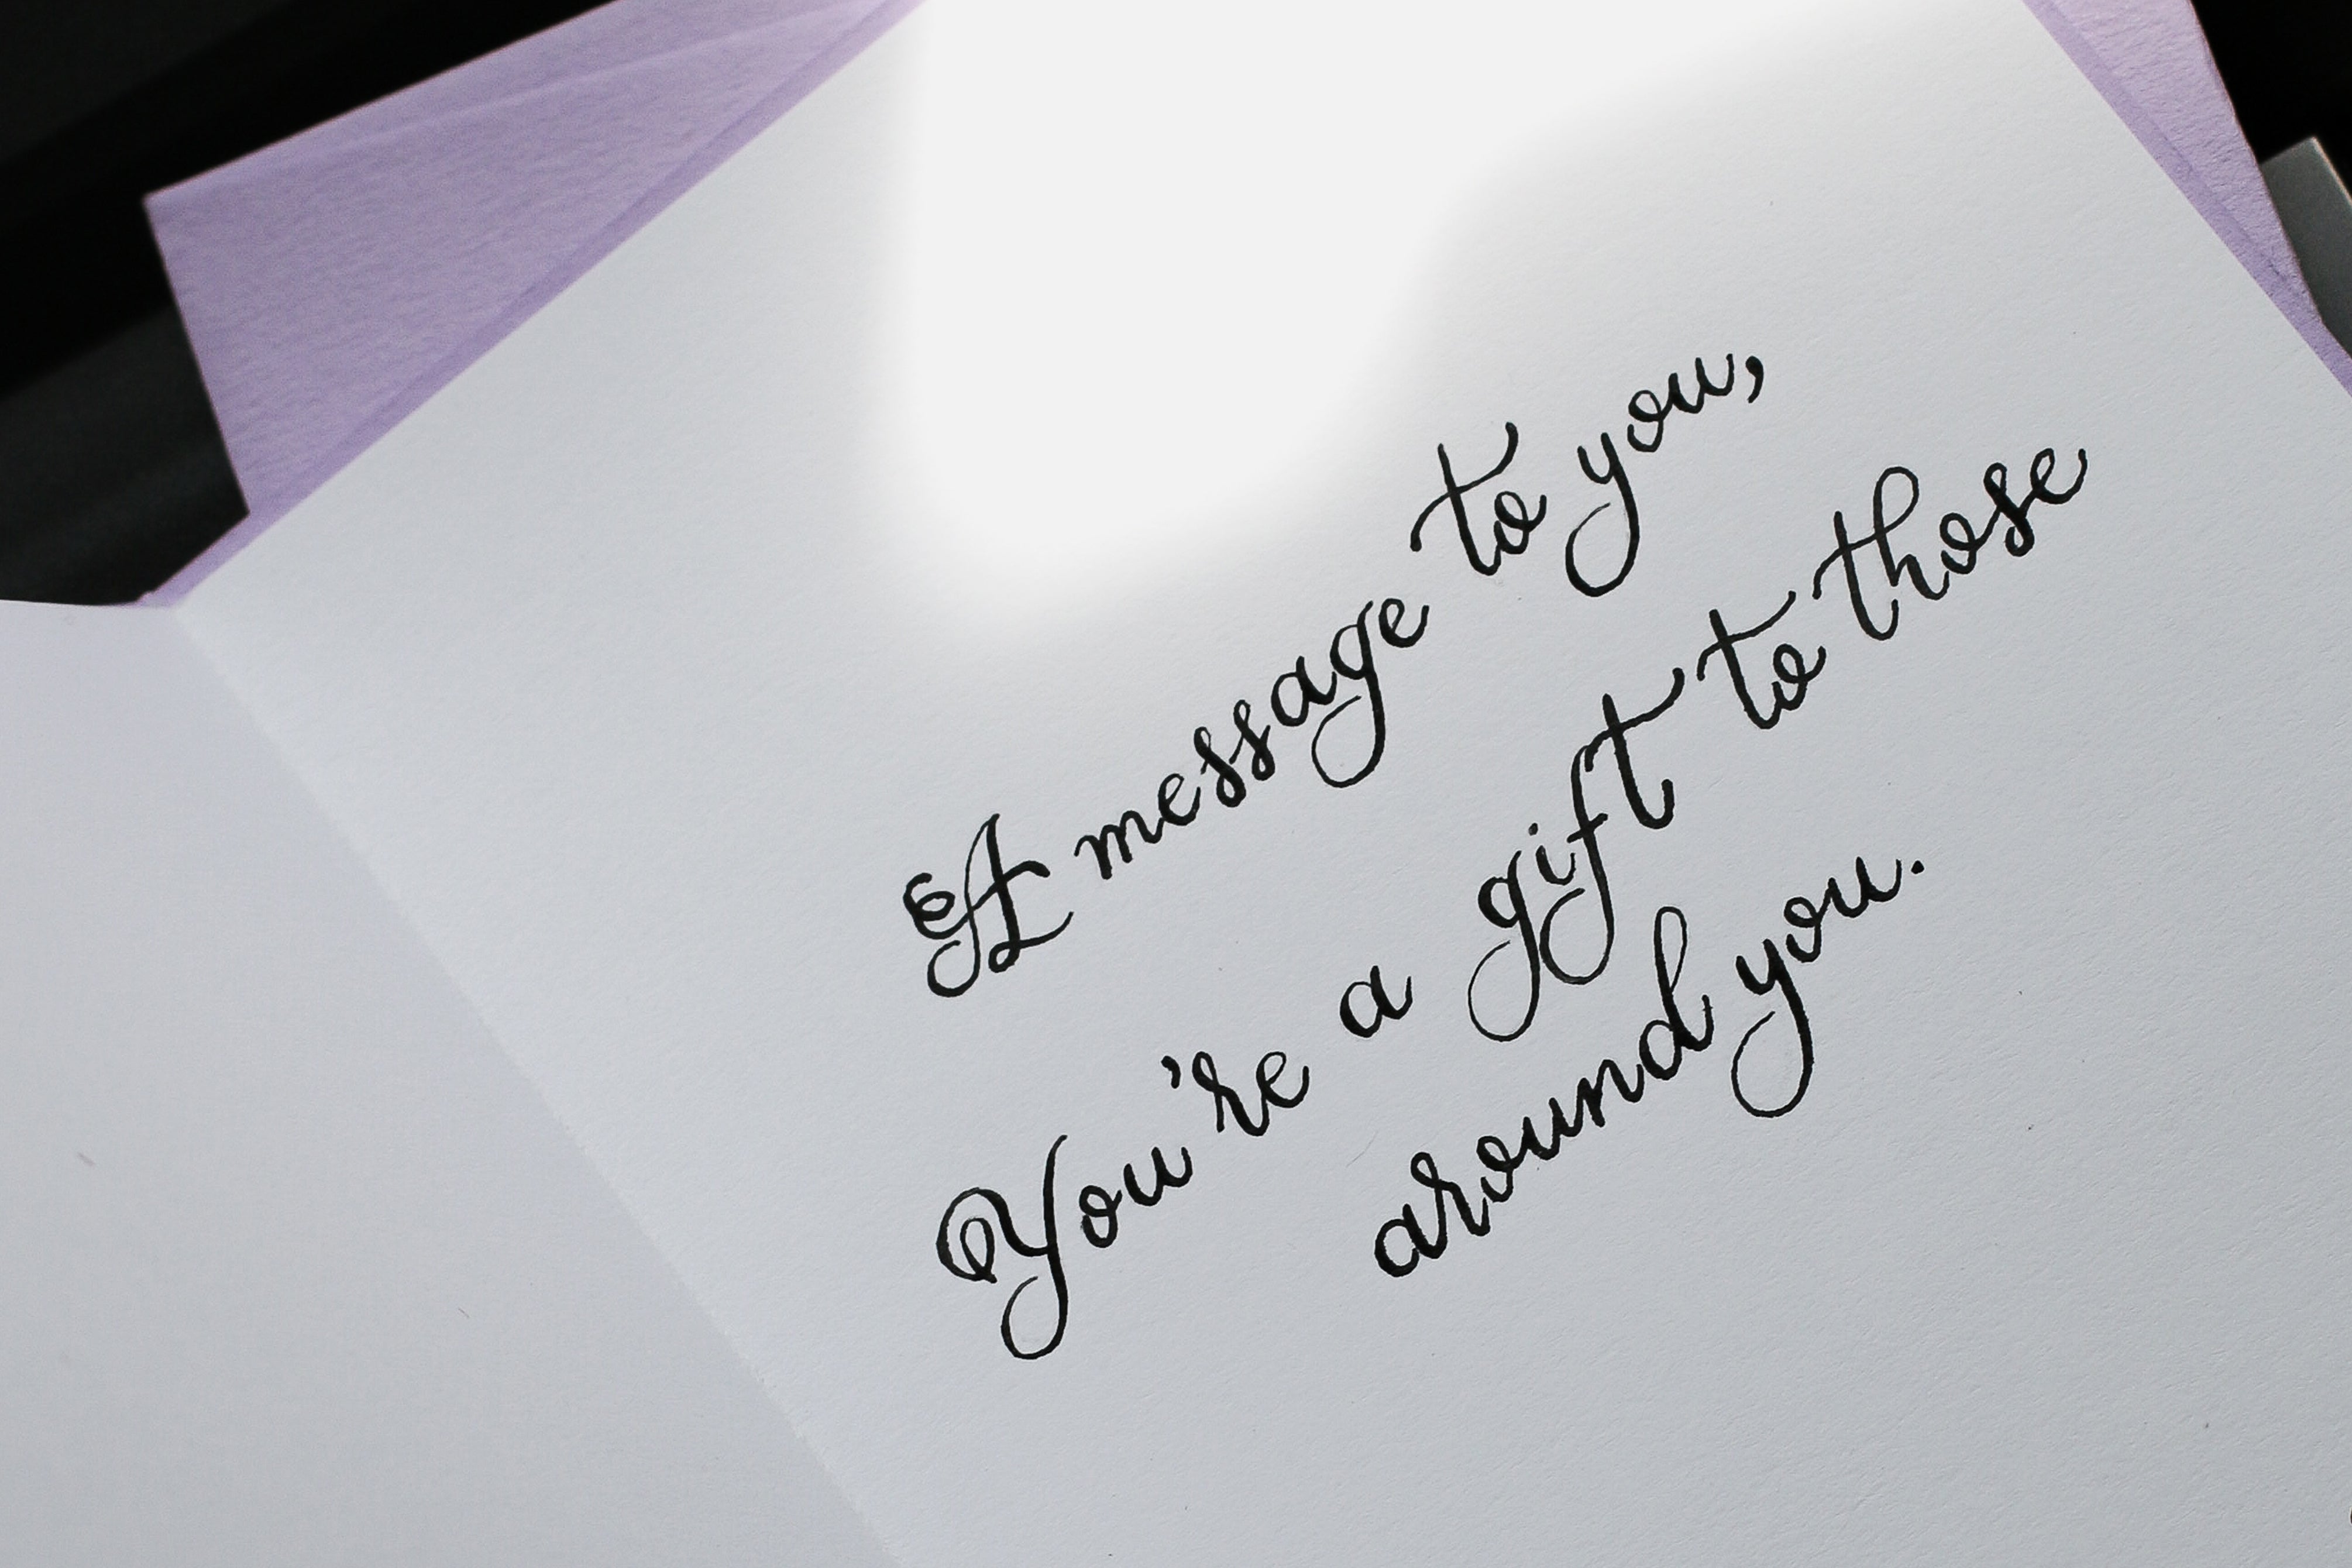 A message to you,
You're a gift to those
around you.